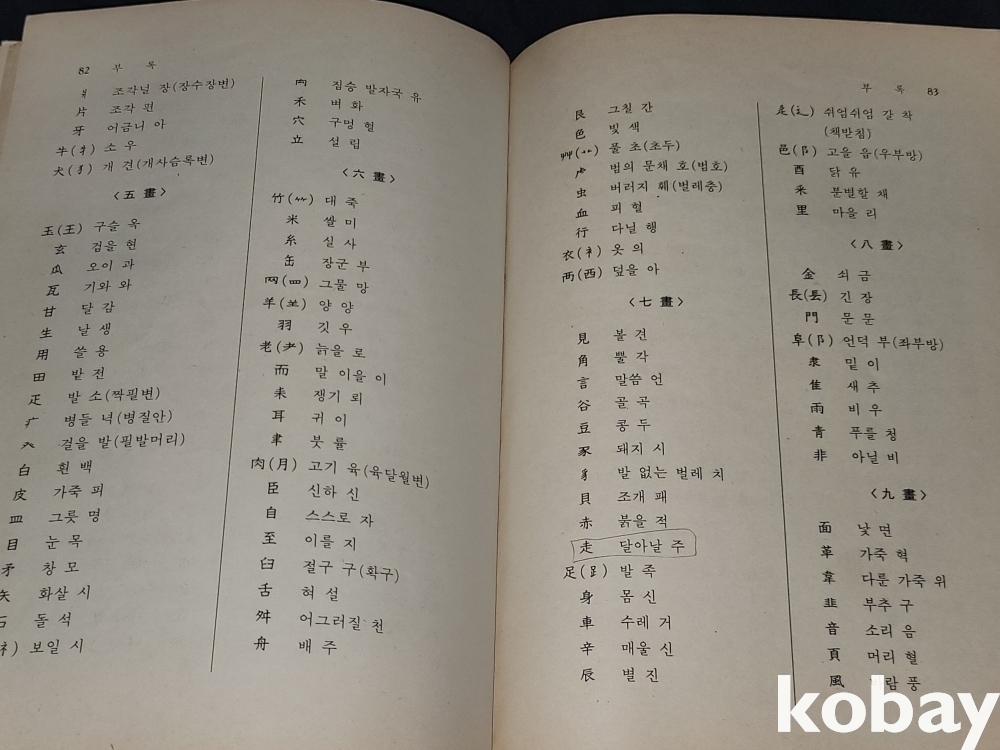 82 부 록
爿 조각널 장(장수장변)
片 조각 편
牙 어금니 아
牛(牜) 소 우
犬(犭) 개 견(개사슴록변)
〈五 畫〉
玉(王) 구슬 옥
玄 검을 현
瓜 오이 과
瓦 기와 와
甘 달 감
生 날 생
用 쓸 용
田 밭 전
疋 발 소(짝필변)
疒 병들 녁(병질안)
癶 걸을 발(필발머리)
白 흰 백
皮 가죽 피
皿 그릇 명
目 눈 목
矛 창 모
矢 화살 시
石 돌 석
礻) 보일 시
禸 짐승 발자국 유
禾 벼 화
穴 구멍 혈
立 설 립
〈六 畫〉
竹(⺮) 대 죽
米 쌀 미
糸 실 사
缶 장군 부
网(罒) 그물 망
羊(⺷) 양 양
羽 깃 우
老(耂) 늙을 로
而 말 이을 이
耒 쟁기 뢰
耳 귀 이
聿 붓 률
肉(月) 고기 육(육달월변)
臣 신하 신
自 스스로 자
至 이를 지
臼 절구 구(확구)
舌 혀 설
舛 어그러질 천
舟 배 주
부 록 83
艮 그칠 간
色 빛 색
艸(艹) 풀 초(초두)
虍 범의 문채 호(범호)
虫 버러지 훼(벌레충)
血 피 혈
行 다닐 행
衣(衤) 옷 의
襾(西) 덮을 아
〈七 畫〉
見 볼 견
角 뿔 각
言 말씀 언
谷 골 곡
豆 콩 두
豕 돼지 시
豸 발 없는 벌레 치
貝 조개 패
赤 붉을 적
走 달아날 주
足(⻊) 발 족
身 몸 신
車 수레 거
辛 매울 신
辰 별 진
辵(辶) 쉬엄쉬엄 갈 착
(책받침)
邑(阝) 고을 읍(우부방)
酉 닭 유
釆 분별할 채
里 마을 리
〈八 畫〉
金 쇠 금
長(镸) 긴 장
門 문 문
阜(阝) 언덕 부(좌부방)
隶 밑 이
隹 새 추
雨 비 우
靑 푸를 청
非 아닐 비
〈九 畫〉
面 낯 면
革 가죽 혁
韋 다룬 가죽 위
韭 부추 구
音 소리 음
頁 머리 혈
風 람 풍
kobay